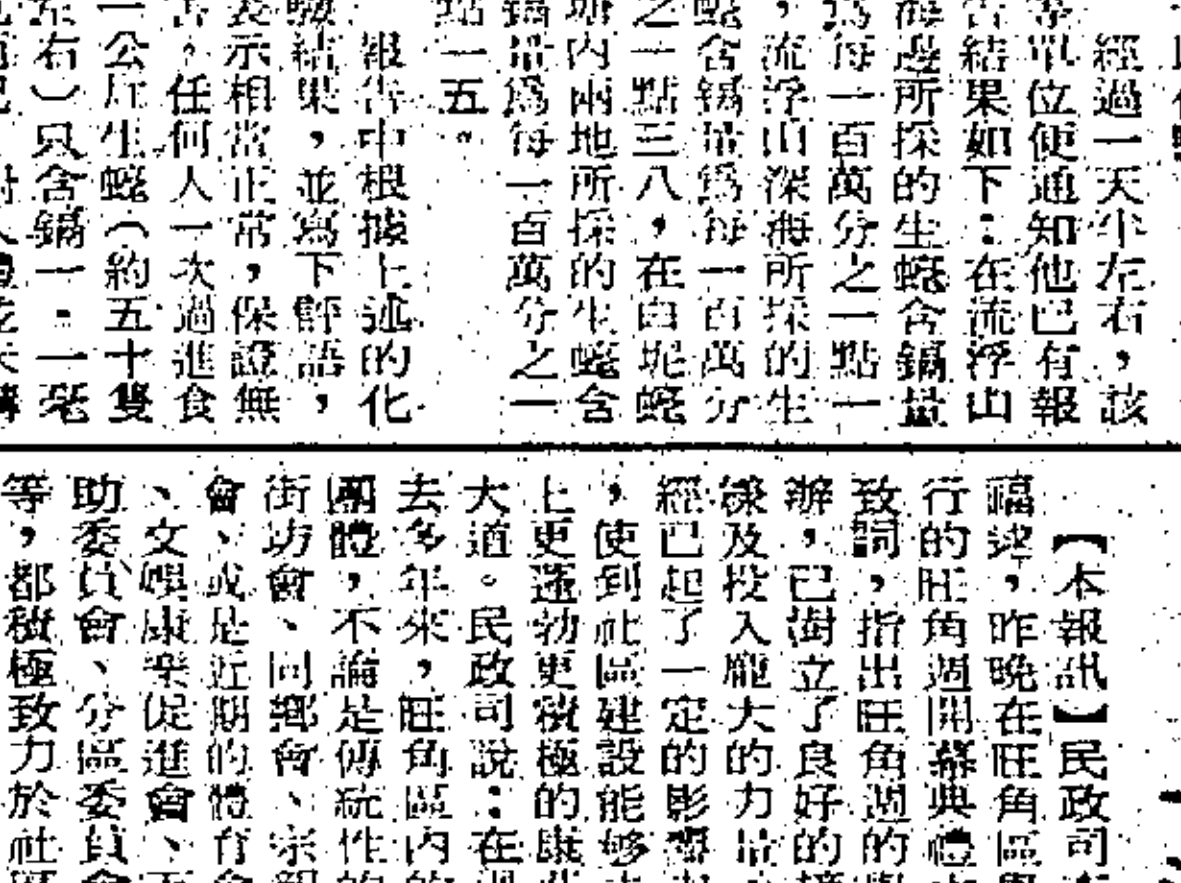 經過一天半左右，該
等單位便通知他已有報
告結果如下：在流浮山
海邊所採的生蠔含鎘量
爲每一百萬分之一點一
，流浮山深海所採的生
蠔含鎘量爲每一百萬分
之一點三八，在白坭蠔
塘內兩地所採的生蠔含
鎘量爲每一百萬分之一
點一五。
報告中根據上述的化
驗結果，並寫下評語，
表示相當正常，保證無
害，任何人一次過進食
一公斤生蠔（約五十隻
左右）只含鎘一．一毫
【本報訊】民政司
福逑，昨晚在旺角區
行的旺角週開幕典禮
致詞，指出旺角週的
辦，已樹立了良好的
錄及投入龐大的力量
經已起了一定的影響
，使到社區建設能够
上更蓬勃更積極的康
大道。民政司說：在
去多年來，旺角區內
團體，不論是傳統性的
街坊會、同鄉會、宗親
會、或是近期的體育會
、文娛康樂促進會、
助委員會、分區委員會
等，都積極致力於社區